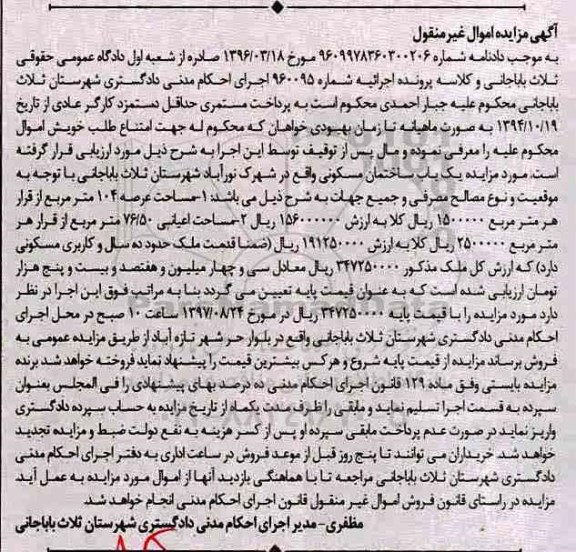 آگهی مزایده اموال غیر منقول
به موجب دادنامه شماره ۹۶۰۹۹۷۸۳۶۰۳۰۰۲۰۶ مورخ ۱۳۹۶/۰۳/۱۸ صادره از شعبه اول دادگاه عمومی حقوقی
ثلاث باباجانی و کلاسه پرونده اجرائیه شماره ۹۶۰۰۹۵ اجرای احکام مدنی دادگستری شهرستان ثلاث
باباجانی محکوم علیه جبار احمدی محکوم است به پرداخت مستمری حداقل دستمزد کارگر عادی از تاریخ
۱۳۹۴/۱۰/۱۹ به صورت ماهیانه تا زمان بهبودی خواهان که محکوم له جهت امتناع طلب خویش اموال
محکوم علیه را معرفی نموده و مال پس از توقیف توسط این اجرا به شرح ذیل مورد ارزیابی قرار گرفته
است. مورد مزایده یک باب ساختمان مسکونی واقع در شهرک نورآباد شهرستان ثلاث باباجانی با توجه به
موقعیت و نوع مصالح مصرفی و جمیع جهات به شرح ذیل می باشد: ۱-مساحت عرصه ۱۰۴ متر مربع از قرار
هر متر مربع ۱۵۰۰۰۰۰ ریال کلا به ارزش ۱۵۶۰۰۰۰۰۰ ریال ۲-مساحت اعیانی ۷۶/۵۰ متر مربع از قرار هر
متر مربع ۲۵۰۰۰۰۰ ریال کلا به ارزش ۱۹۱۲۵۰۰۰۰ ریال (ضمنا قدمت ملک حدود ده سال و کاربری مسکونی
دارد) که ارزش کل ملک مذکور ۳۴۷۲۵۰۰۰۰ ریال معادل سی و چهار میلیون و هفتصد و بیست و پنج هزار
تومان ارزیابی شده است که به عنوان قیمت پایه تعیین می گردد بنا به مراتب فوق این اجرا در نظر
دارد مورد مزایده را با قیمت پایه ۳۴۷۲۵۰۰۰۰ ریال در مورخ ۱۳۹۷/۰۸/۲۴ ساعت ۱۰ صبح در محل اجرای
احکام مدنی دادگستری شهرستان ثلاث باباجانی واقع در بلوار حر شهر تازه آباد از طریق مزایده عمومی به
فروش برساند مزایده از قیمت پایه شروع و هر کس بیشترین قیمت را پیشنهاد نماید فروخته خواهد شد برنده
مزایده بایستی وفق ماده ۱۲۹ قانون اجرای احکام مدنی ده درصد بهای پیشنهادی را فی المجلس بعنوان
سپرده به قسمت اجرا تسلیم نماید و مابقی را ظرف مدت یکماه از تاریخ مزایده به حساب سپرده دادگستری
واریز نماید در صورت عدم پرداخت مابقی سپرده او پس از کسر هزینه به نفع دولت ضبط و مزایده تجدید
خواهد شد. خریداران می توانند تا پنج روز قبل از موعد فروش در ساعت اداری به دفتر اجرای احکام مدنی
دادگستری شهرستان ثلاث باباجانی مراجعه تا با هماهنگی بازدید آنها از اموال مورد مزایده به عمل آید.
مزایده در راستای قانون فروش اموال غیر منقول قانون اجرای احکام مدنی انجام خواهد شد.
مظفری - مدیر اجرای احکام مدنی دادگستری شهرستان ثلاث باباجانی